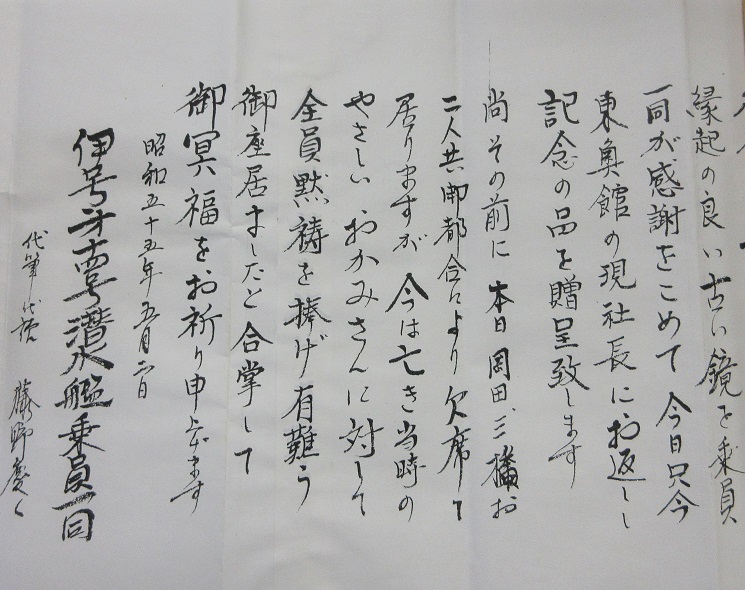 縁起の良い古い鏡を乗員
一同が感謝をこめて今日只今
東奥館の現社長にお返しし
記念の品を贈呈致します
尚その前に本日岡田、三橋お
二人共御都合により欠席して
居りますが今は亡き当時の
やさしいおかみさんに対して
全員黙祷を捧げ有難う
御座居ましたと合掌して
御冥福をお祈り申上げます
昭和五十五年五月
伊号才 号潜水艦乗員一同
代筆代読 藤野